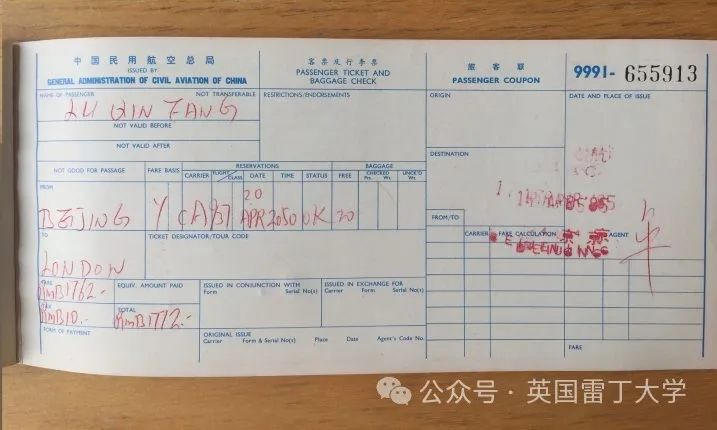 中国民用航空总局
ISSUED BY
GENERAL ADMINISTRATION OF CIVIL AVIATION OF CHINA
客票及行李票
PASSENGER TICKET AND
BAGGAGE CHECK
旅客联
PASSENGER COUPON
9991- 655913
NAME OF PASSENGER NOT TRANSFERABLE
LU QIN FANG
RESTRICTIONS/ENDORSEMENTS
ORIGIN
DATE AND PLACE OF ISSUE
NOT VALID BEFORE
NOT VALID AFTER
DESTINATION
NOT GOOD FOR PASSAGE
FARE BASIS
RESERVATIONS
BAGGAGE
CARRIER FLIGHT/CLASS DATE TIME STATUS FREE CHECKED Pcs. Wt. UNCK'D Wt.
FROM
BEIJING Y CA 937 20 APR 2050 OK 20
FROM/TO
CARRIER FARE CALCULATION AGENT
TO
LONDON
TICKET DESIGNATOR/TOUR CODE
FARE
RMB1762.-
EQUIV. AMOUNT PAID
ISSUED IN CONJUNCTION WITH
Form Serial No(s)
ISSUED IN EXCHANGE FOR
Carrier Form Serial No(s)
TAX
RMB10.-
TOTAL
RMB1772.-
FORM OF PAYMENT
ORIGINAL ISSUE
Carrier Form & Serial No(s) Place Date Agent's Code No.
FARE
公众号 · 英国雷丁大学